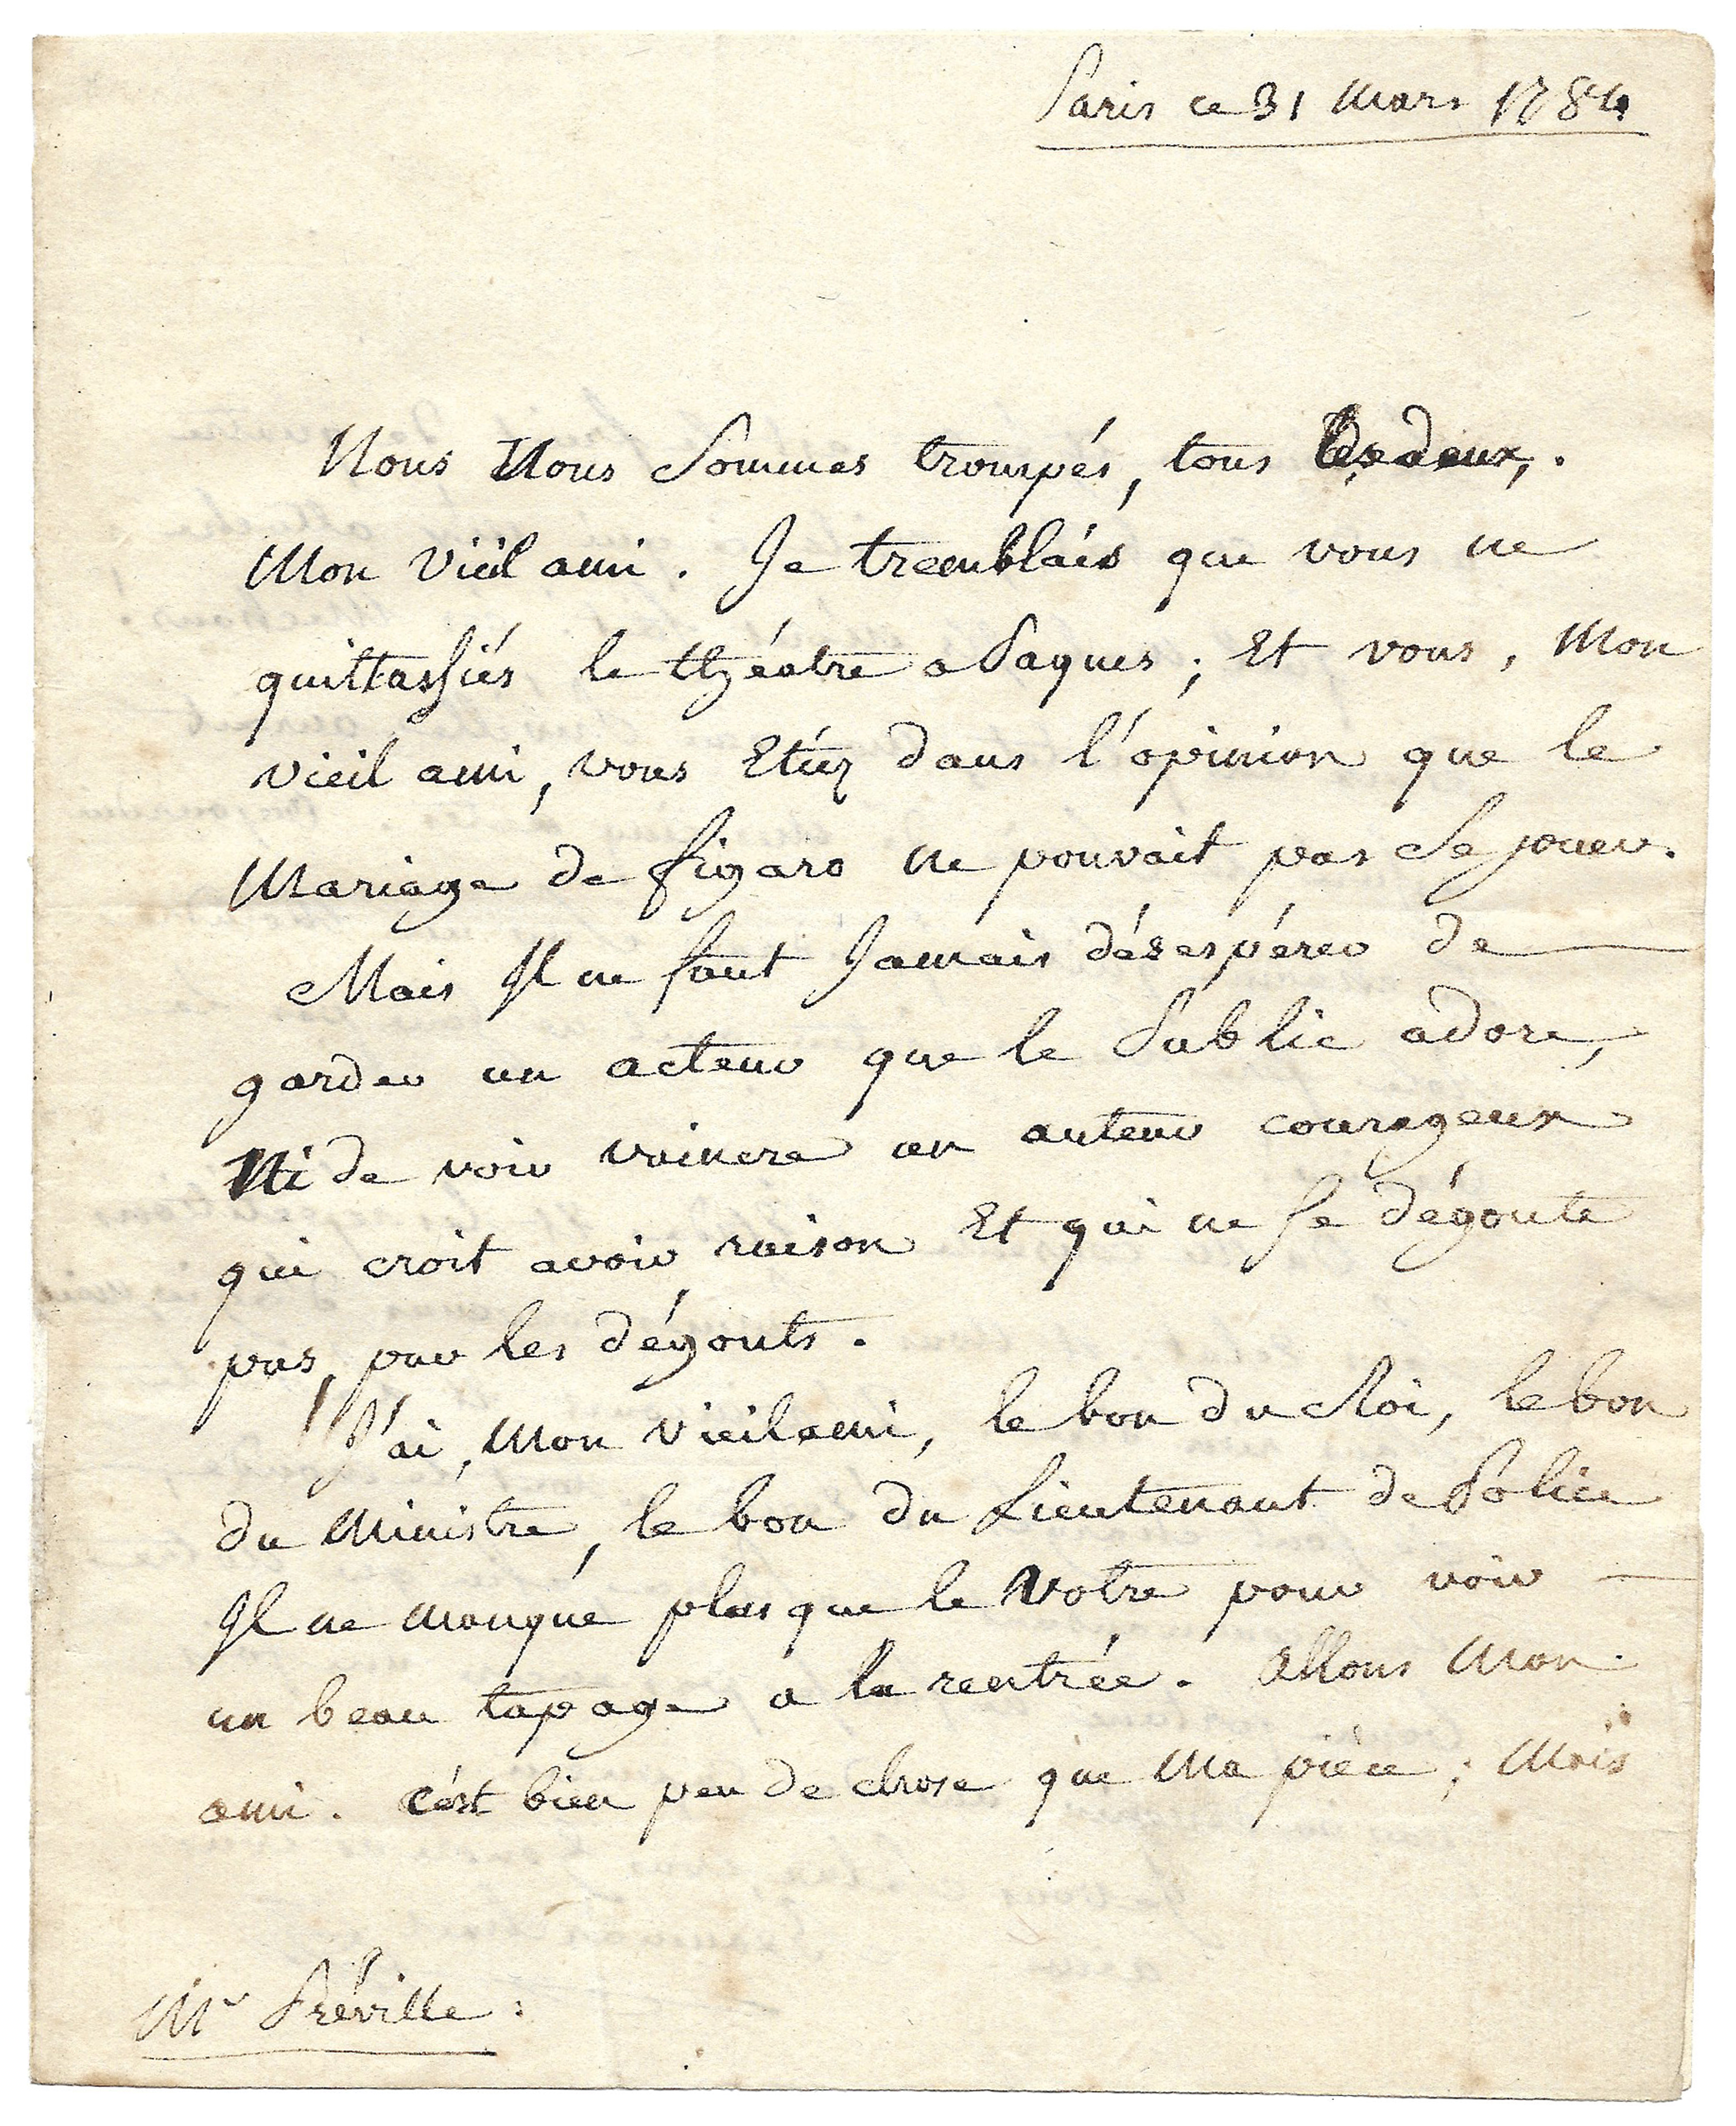 Paris ce 31 Mars 1784
Nous Nous Sommes trompés, tous les deux,.
Mon vieil ami. Je tremblais que vous ne
quittassiés le théatre a Paques ; Et vous, Mon
vieil ami, vous Etiez dans l'opinion que le
Mariage de figaro ne pouvait pas Se jouer.
Mais Il ne faut Jamais désespérer de
garder un acteur que le Public adore,
Ni de voir vaincre un auteur courageux
qui croit avoir raison Et qui ne Se dégoute
pas, par les dégouts.
J'ai, Mon vieil ami, le bon du Roi, le bon
du Ministre, le bon du Lieutenant de Police
Il ne manque plus que le Votre pour voir
un beau tapage a la rentrée. Allons Mon
ami. c'est bien peu de chose que Ma pièce ; Mais
Mr Préville :